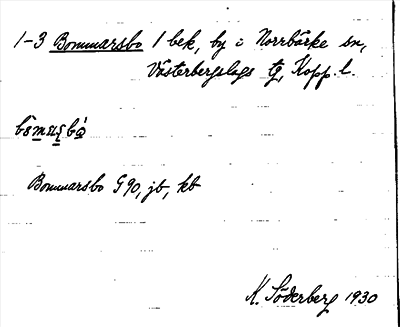 1-3 Bommarsbo 1 bek, by i Norrbärke sn,
Västerbergslags tg, Kopp. l.
Bommarsbo G90, jb, kb
K. Söderberg 1930